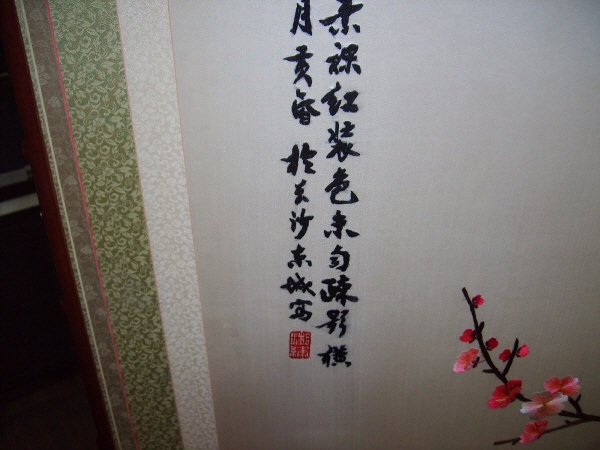 裸红装色未匀疏影横
月黄昏 於长沙东城写